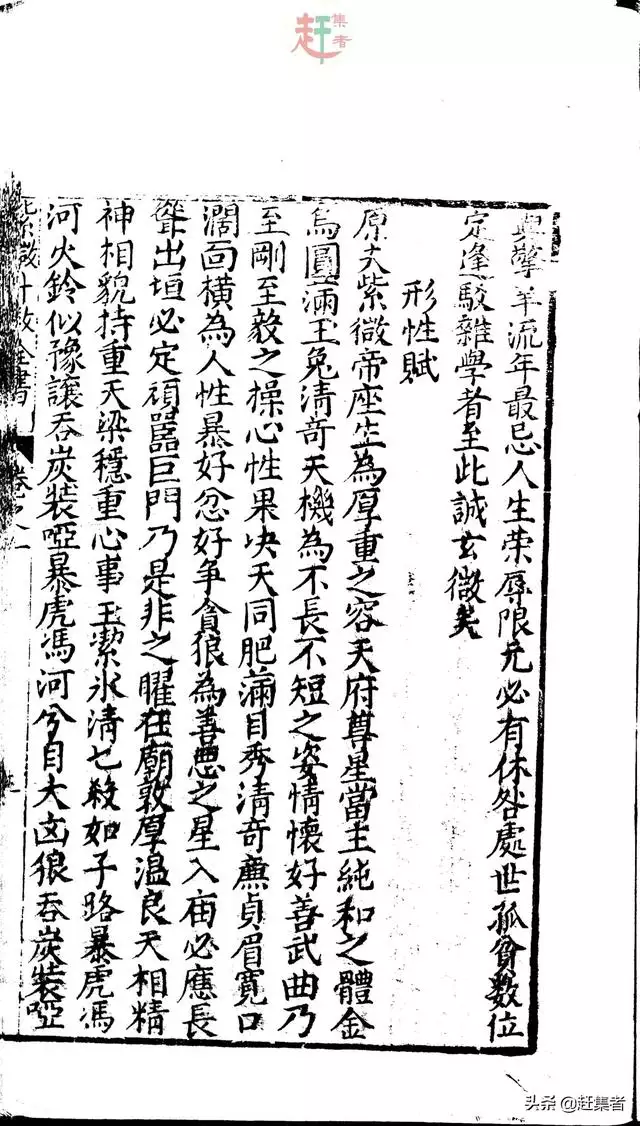 赶集者
與擎羊流年最忌人生荣辱限元必有休咎處世孤貧數位
定逢駁雜學者至此誠玄微矣
形性賦
原夫紫微帝座生為厚重之容天府尊星當主純和之體金
烏圓滿玉兔清奇天機為不長不短之姿情懷好善武曲乃
至剛至毅之操心性果决天同肥滿目秀清奇亷貞眉寛口
濶面横為人性暴好忿好争貪狼為善惡之星入庙必應長
聳出垣必定頑嚚巨門乃是非之曜在廟敦厚温良天相精
神相貌持重天梁穩重心事玉潔氷清七殺如子路暴虎馮
河火鈴似豫讓吞炭裝啞暴虎馮河兮目大凶狼吞炭裝啞
紫微斗數全書 卷之一
头条 @赶集者